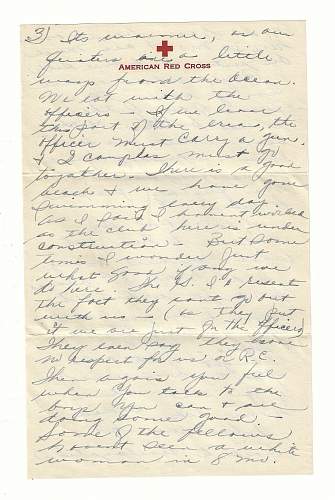 3) Its warmer, as our
AMERICAN RED CROSS
quarters are a little
ways from the ocean.
We eat with the
officers - If we leave
this part of the area, the
officer must carry a gun.
& 2 couples must go
together. There is a good
beach & we have gone
swimming every day
as I said I havent worked
as the club here is under
construction - But some
times I wonder just
what good if any we
do here. The G.I.s resent
the fact they cant go out
with us - (as they put
it we are just for the officers)
They even say they have
no respect for us or R.C.
Then again you feel
when you talk to the
boys you can & are
doing some good.
Some of the fellows
havent seen a white
woman in 8 mo.